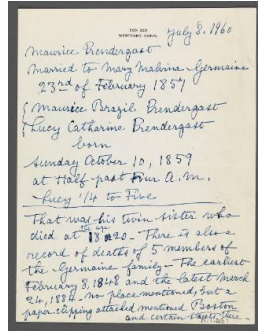 July 8, 1960
BOX 253
WESTPORT, CONN.
Maurice Prendergast
married to Mary Malvina Germaine
23rd of February 1857
{ Maurice Brazil Prendergast
{ Lucy Catharine Prendergast
born
Sunday October 10, 1859
at Half past Four A.M.
Lucy 1/4 to Five
That was his twin sister who
died at the age 18 20 - There is also a
record of deaths of 5 members of
the Germaine family - The earliest
February 8, 1848 and the latest March
24, 1884 - no place mentioned, but a
paper clipping attached mentioned Boston
and certain there